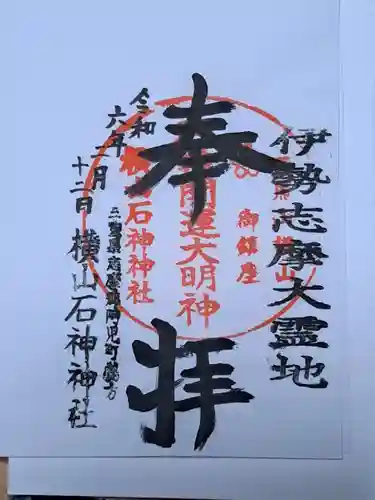 伊勢志摩大霊地
横山
御鎮座
奉拝
開運大明神
横山石神神社
三重県志摩郡阿児町鵜方
令和
六年二月
十二日
横山石神神社